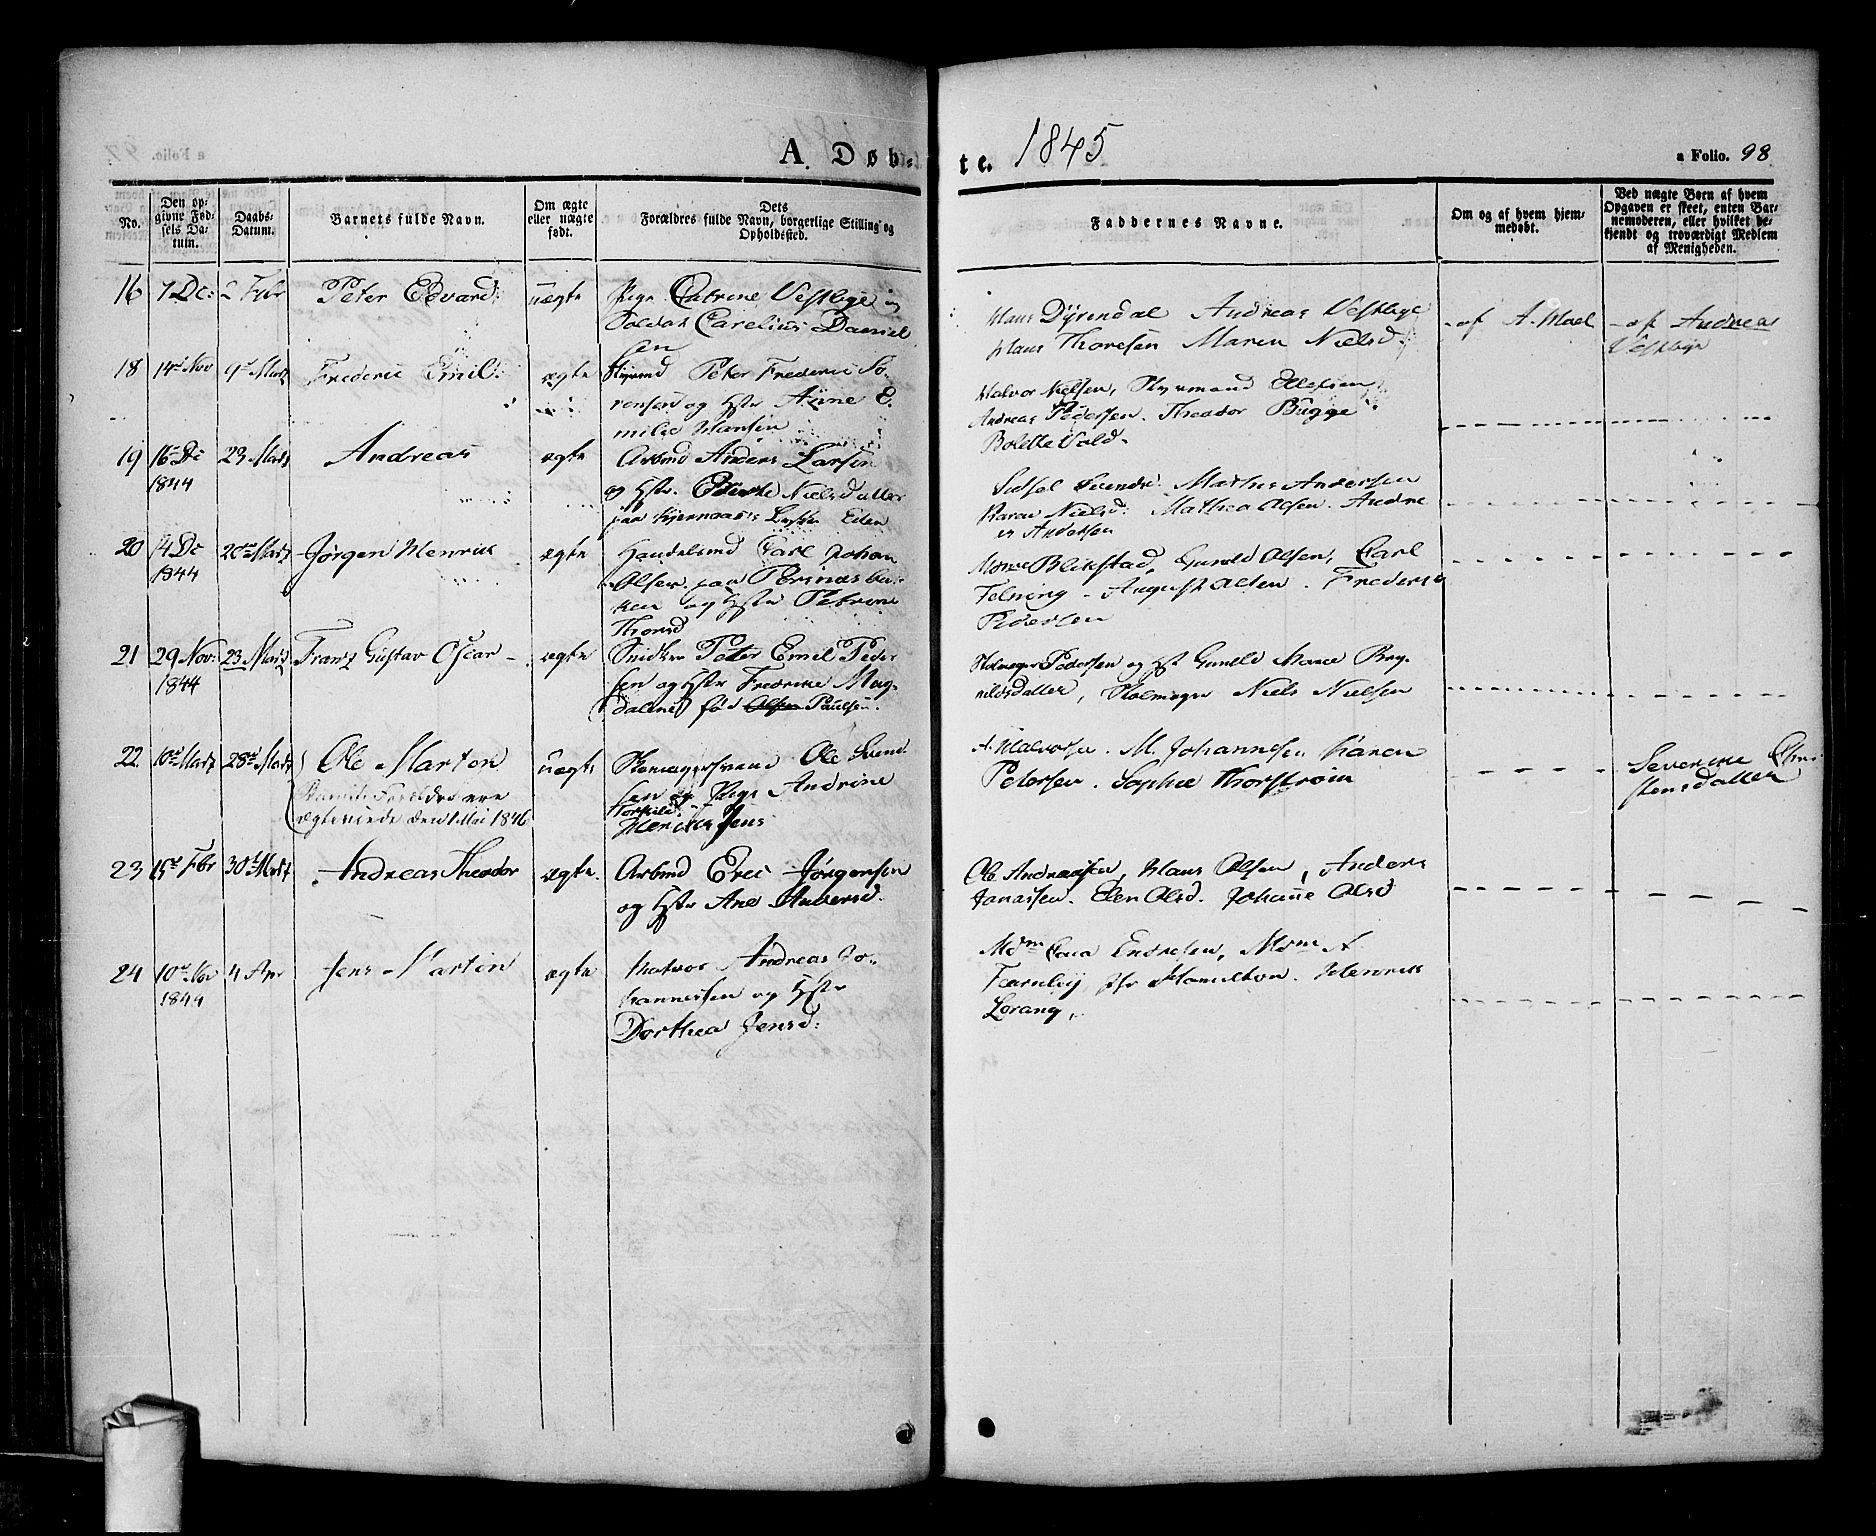 A. Døb-
te. 1845
a Folio. 98
No.
Den op-
givne Fød-
sels Da-
tum.
Daabs-
Datum.
Barnets fulde Navn.
Om ægte
eller uægte
født.
Dets
Forældres fulde Navn, borgerlige Stilling og
Opholdssted.
Faddernes Navne.
Om og af hvem hjem-
medøbt.
Ved uægte Børn af hvem
Opgaven er skeet, enten Bar-
nemoderen, eller hvilket be-
kjendt og troværdigt Medlem
af Menigheden.
16 7 Dc: 2 Febr Peter Edvard uægte Pige Catrine Vestbye og
Soldat Carelius Daniel
sen
Hans Dyrendal Andreas Vestbye
Hans Thoresen Maren Nielsd.
- af A. Moel
- af Andreas
Vestbye
18 14de Nov 9de Martz Frederic Emil. ægte Styrmd Peter Frederic Sø-
rensen og Hstr Anne E-
milie Hansen
Halvor Nielsen, Styrmand Ellefsen
Andreas Pedersen. Theodor Bugge
Bolette Vold.
19 16 Dc 23 Martz Andreas ægte Arbmd Anders Larsen
1844
og Hstr. Nielsdatter
paa Eden
Svends. Mathis Andersen
Karen Nielsd: Mathea Olsen. Andre
as Andersen
20 14 Dc Martz Jørgen Henrik ægte Handelsmd Carl Johan
1844
Olsen paa Persnæsbak-
ken og Hstr Petrine
Thorsd
Blikstad, Gunild Olsen, Carl
August Olsen. Frederik
Pedersen
21 29 Nov: 23 Martz Frantz Gustav Oscar - ægte Snidker Peter Emil Peder
1844
sen og Hstr Fredrikke Mag-
dalene født Olsen Paulsen.
Pedersen og Hst Gunild Marie Bag-
nildsdatter, Skolmager Niels Nielsen
22 10de Martz 28de Martz Ole Marton uægte Skomagersvend Ole Svend
Forældre ere
ægteviede den 1 Mai 1846
sen og Pige Andrine
Torkild:
Henrikke Jens
A. Halvorsen. M. Johannesen Karen
Petersen. Sophie Thorstrøm
Severine Chri-
stensdatter
23 15de Fbr 30te Martz Andreas Theodor ægte. Arbmd Eric Jørgensen
og Hstr Ane Andersd.
Ole Andreassen, Hans Olsen, Anders
Jonassen. Elen Olsd. Johanne Olsd
24 10de Nov 4 Apr Jens Martin ægte Matros Andreas Jo-
1844
hannessen og Hstr
Dorthea Jensd:
Mdm Endresen, Mdm A.
Fearnley Jfr Hamilton. Henrik
Lorang.